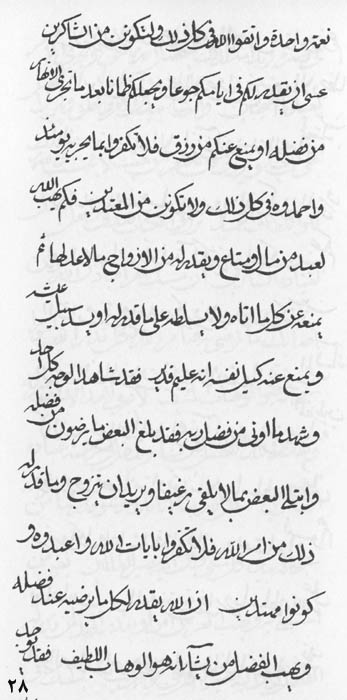 نعمة واحدة واتقوا الله في كل ذلك ولتكونن من الشاكرين
عسى ان يقدر لكم في ايامكم جوعا ويجعلكم ظمانا بعد ما تجري الانهار
من فضله او يمنع عنكم من رزق فلا تكفروا بما يجري من عنده
واحمدوه في كل ذلك ولا تكونن من المعتدين فكم يهب الله
لعبد من مال ومتاع ويقدر له من الازواج ما لا عد لها ثم
يمنعه عن كل ما اتاه ولا يسلطه على ما قدر له او يسد سبيل عيشه
ويمنع عنه كيل نفسه انه عليم قدير فقد شاهدنا الوجه كل احد
وشهد ما اوتي من فضل ربه فقد بلغ البعض ما يرضون من فضله
وابتلي البعض بما لا يلقى رغيفا ويريد ان يتزوج وما قدر له
ذلك من امر الله فلا تكفروا بايات الله واعبدوه و
كونوا ممتنين ان الله يقدر لكل ما يرضيه عند فضله
ويهب الفضل من يشآء انه هو الوهاب اللطيف فقد وجد
٢٨